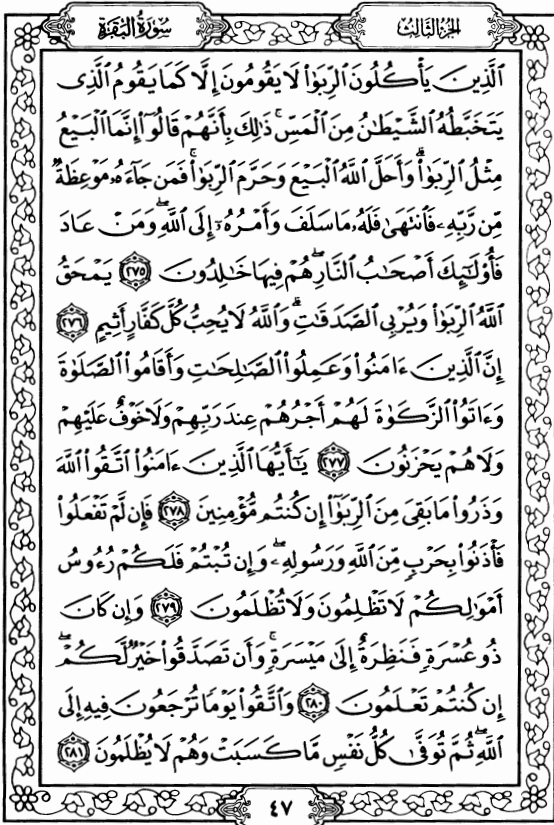 الجزء الثالث
سورة البقرة
ٱلَّذِينَ يَأۡكُلُونَ ٱلرِّبَوٰاْ لَا يَقُومُونَ إِلَّا كَمَا يَقُومُ ٱلَّذِي
يَتَخَبَّطُهُ ٱلشَّيۡطَٰنُ مِنَ ٱلۡمَسِّۚ ذَٰلِكَ بِأَنَّهُمۡ قَالُوٓاْ إِنَّمَا ٱلۡبَيۡعُ
مِثۡلُ ٱلرِّبَوٰاْۗ وَأَحَلَّ ٱللَّهُ ٱلۡبَيۡعَ وَحَرَّمَ ٱلرِّبَوٰاْۚ فَمَن جَآءَهُۥ مَوۡعِظَةٞ
مِّن رَّبِّهِۦ فَٱنتَهَىٰ فَلَهُۥ مَا سَلَفَ وَأَمۡرُهُۥٓ إِلَى ٱللَّهِۖ وَمَنۡ عَادَ
فَأُوْلَٰٓئِكَ أَصۡحَٰبُ ٱلنَّارِۖ هُمۡ فِيهَا خَٰلِدُونَ ٢٧٥ يَمۡحَقُ
ٱللَّهُ ٱلرِّبَوٰاْ وَيُرۡبِي ٱلصَّدَقَٰتِۗ وَٱللَّهُ لَا يُحِبُّ كُلَّ كَفَّارٍ أَثِيمٍ ٢٧٦
إِنَّ ٱلَّذِينَ ءَامَنُواْ وَعَمِلُواْ ٱلصَّٰلِحَٰتِ وَأَقَامُواْ ٱلصَّلَوٰةَ
وَءَاتَوُاْ ٱلزَّكَوٰةَ لَهُمۡ أَجۡرُهُمۡ عِندَ رَبِّهِمۡ وَلَا خَوۡفٌ عَلَيۡهِمۡ
وَلَا هُمۡ يَحۡزَنُونَ ٢٧٧ يَٰٓأَيُّهَا ٱلَّذِينَ ءَامَنُواْ ٱتَّقُواْ ٱللَّهَ
وَذَرُواْ مَا بَقِيَ مِنَ ٱلرِّبَوٰٓاْ إِن كُنتُم مُّؤۡمِنِينَ ٢٧٨ فَإِن لَّمۡ تَفۡعَلُواْ
فَأۡذَنُواْ بِحَرۡبٖ مِّنَ ٱللَّهِ وَرَسُولِهِۦۖ وَإِن تُبۡتُمۡ فَلَكُمۡ رُءُوسُ
أَمۡوَٰلِكُمۡ لَا تَظۡلِمُونَ وَلَا تُظۡلَمُونَ ٢٧٩ وَإِن كَانَ
ذُو عُسۡرَةٖ فَنَظِرَةٌ إِلَىٰ مَيۡسَرَةٖۚ وَأَن تَصَدَّقُواْ خَيۡرٞ لَّكُمۡۖ
إِن كُنتُمۡ تَعۡلَمُونَ ٢٨٠ وَٱتَّقُواْ يَوۡمٗا تُرۡجَعُونَ فِيهِ إِلَى
ٱللَّهِۖ ثُمَّ تُوَفَّىٰ كُلُّ نَفۡسٖ مَّا كَسَبَتۡ وَهُمۡ لَا يُظۡلَمُونَ ٢٨١
٤٧